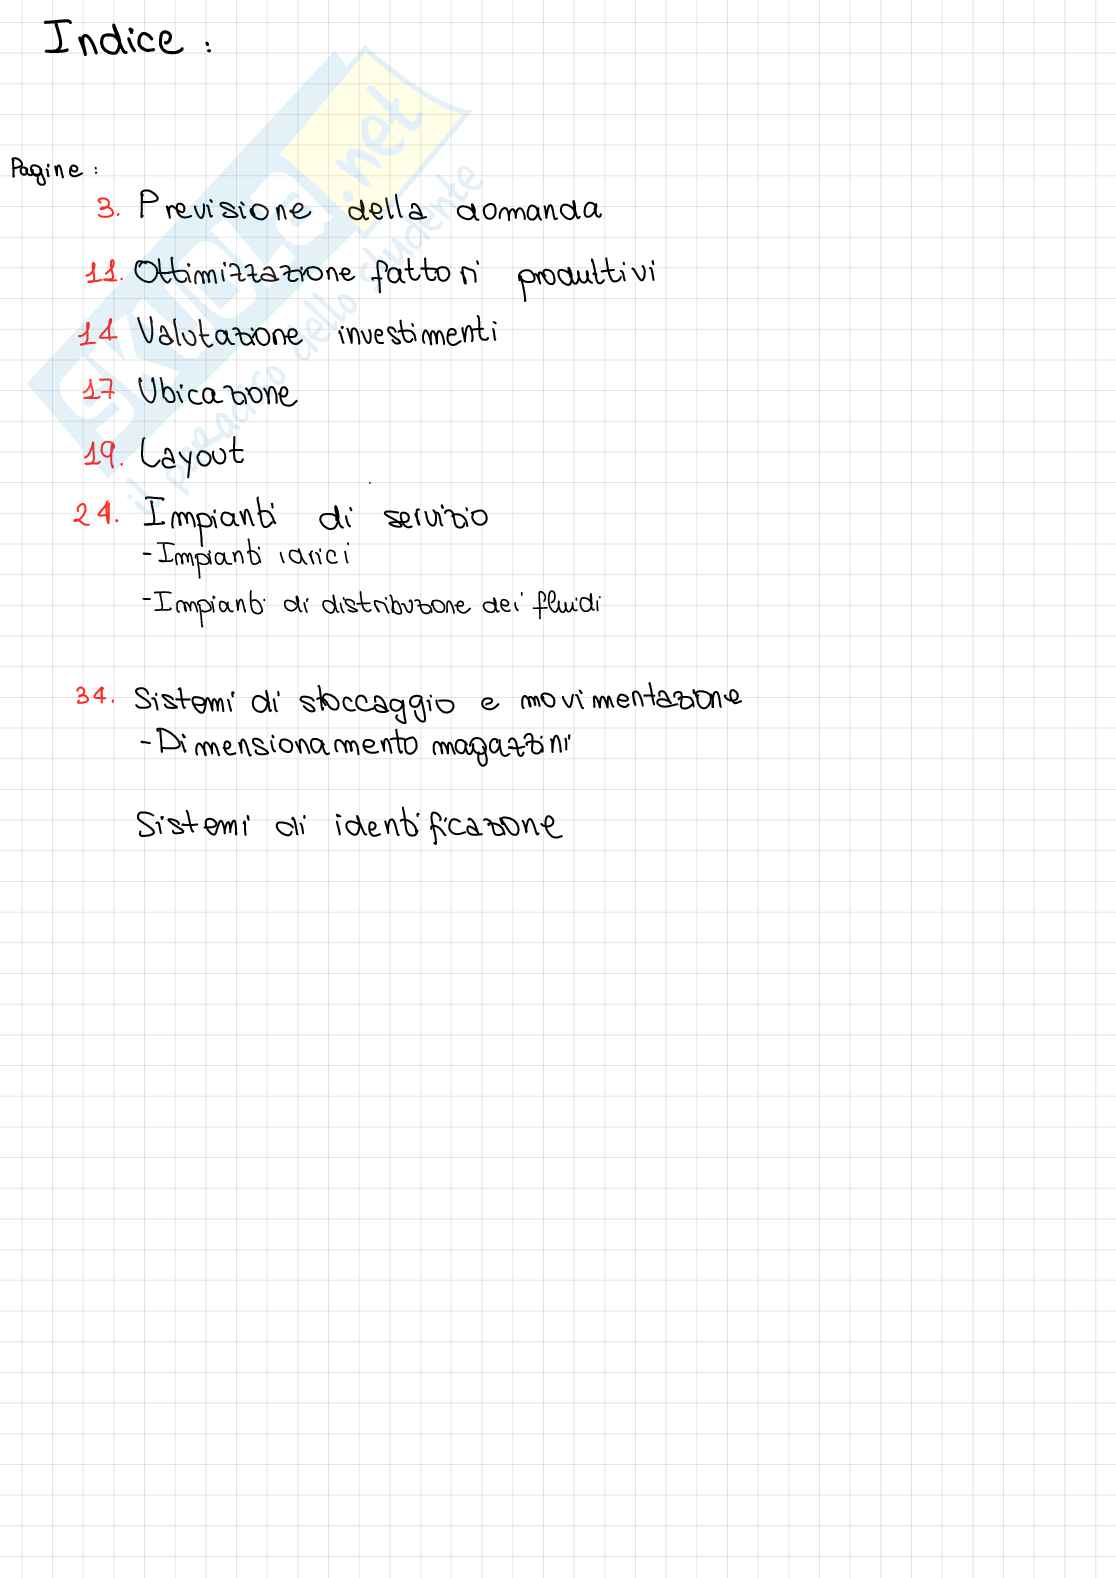 Indice :
Pagine :
3. Previsione della domanda
11. Ottimizzazione fattori produttivi
14 Valutazione investimenti
17 Ubicazione
19. Layout
24. Impianti di servizio
- Impianti idrici
- Impianti di distribuzione dei fluidi
34. Sistemi di stoccaggio e movimentazione
- Dimensionamento magazzini
Sistemi di identificazione
SKUOLA.net
il paradiso dello studente